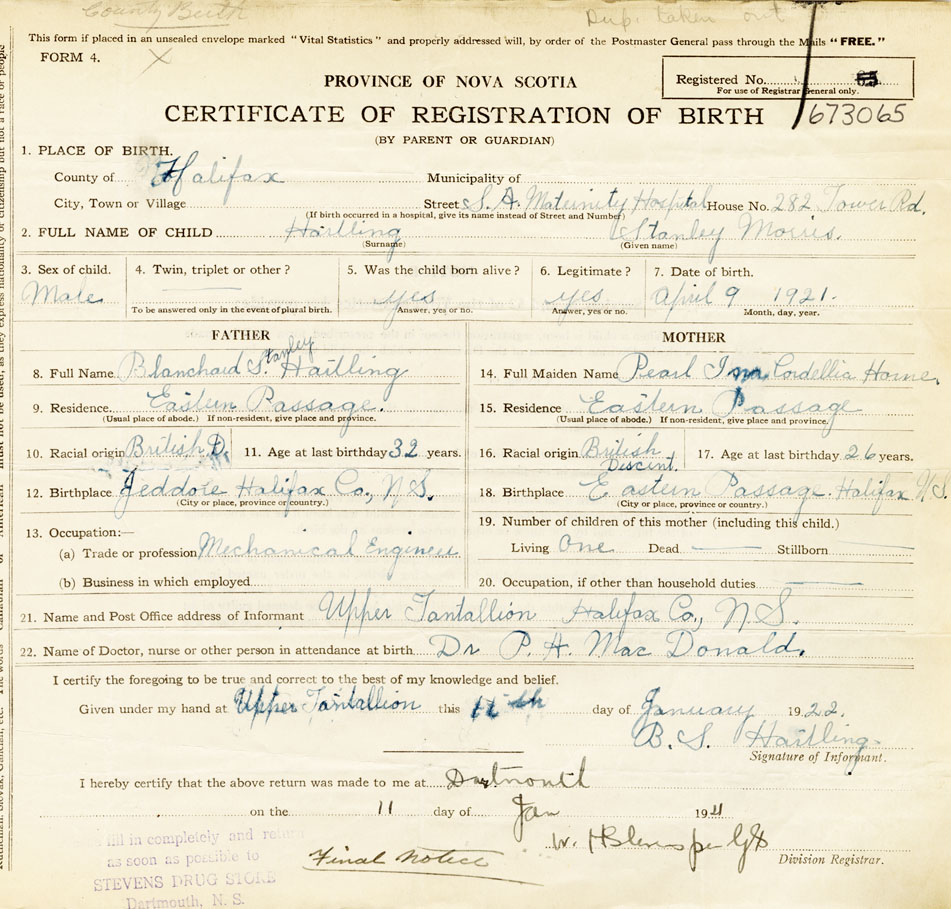 County Birth
Dup. taken out
This form if placed in an unsealed envelope marked "Vital Statistics" and properly addressed will, by order of the Postmaster General pass through the Mails "FREE."
FORM 4. X
PROVINCE OF NOVA SCOTIA
Registered No.
For use of Registrar General only.
CERTIFICATE OF REGISTRATION OF BIRTH 673065
(BY PARENT OR GUARDIAN)
1. PLACE OF BIRTH.
County of Halifax Municipality of
City, Town or Village Street S. A. Maternity Hospital House No. 282 Tower Rd.
(If birth occurred in a hospital, give its name instead of Street and Number)
2. FULL NAME OF CHILD Hartling Stanley Morris.
(Surname) (Given name)
3. Sex of child. 4. Twin, triplet or other? 5. Was the child born alive? 6. Legitimate? 7. Date of birth.
Male yes yes April 9 1921.
To be answered only in the event of plural birth. Answer, yes or no. Answer, yes or no. Month, day, year.
FATHER MOTHER
8. Full Name Blanchard Stanley Hartling 14. Full Maiden Name Pearl Ina Cordellia Horne.
9. Residence Eastern Passage. 15. Residence Eastern Passage
(Usual place of abode.) If non-resident, give place and province. (Usual place of abode.) If non-resident, give place and province.
10. Racial origin British D. 11. Age at last birthday 32 years. 16. Racial origin British Discent. 17. Age at last birthday 26 years.
12. Birthplace Jeddore Halifax Co., N.S. 18. Birthplace Eastern Passage. Halifax N.S.
(City or place, province or country.) (City or place, province or country.)
13. Occupation:— 19. Number of children of this mother (including this child.)
(a) Trade or profession Mechanical Engineer Living One Dead Stillborn
(b) Business in which employed 20. Occupation, if other than household duties
21. Name and Post Office address of Informant Upper Tantallion Halifax Co., N.S.
22. Name of Doctor, nurse or other person in attendance at birth. Dr P. H. MacDonald.
I certify the foregoing to be true and correct to the best of my knowledge and belief.
Given under my hand at Upper Tantallion this 11th day of January 1922.
B. S. Hartling.
Signature of Informant.
I hereby certify that the above return was made to me at Dartmouth
on the 11 day of Jan 19
Division Registrar.
fill in completely and return
as soon as possible to
STEVENS DRUG STORE
Dartmouth, N. S.
Final Notice